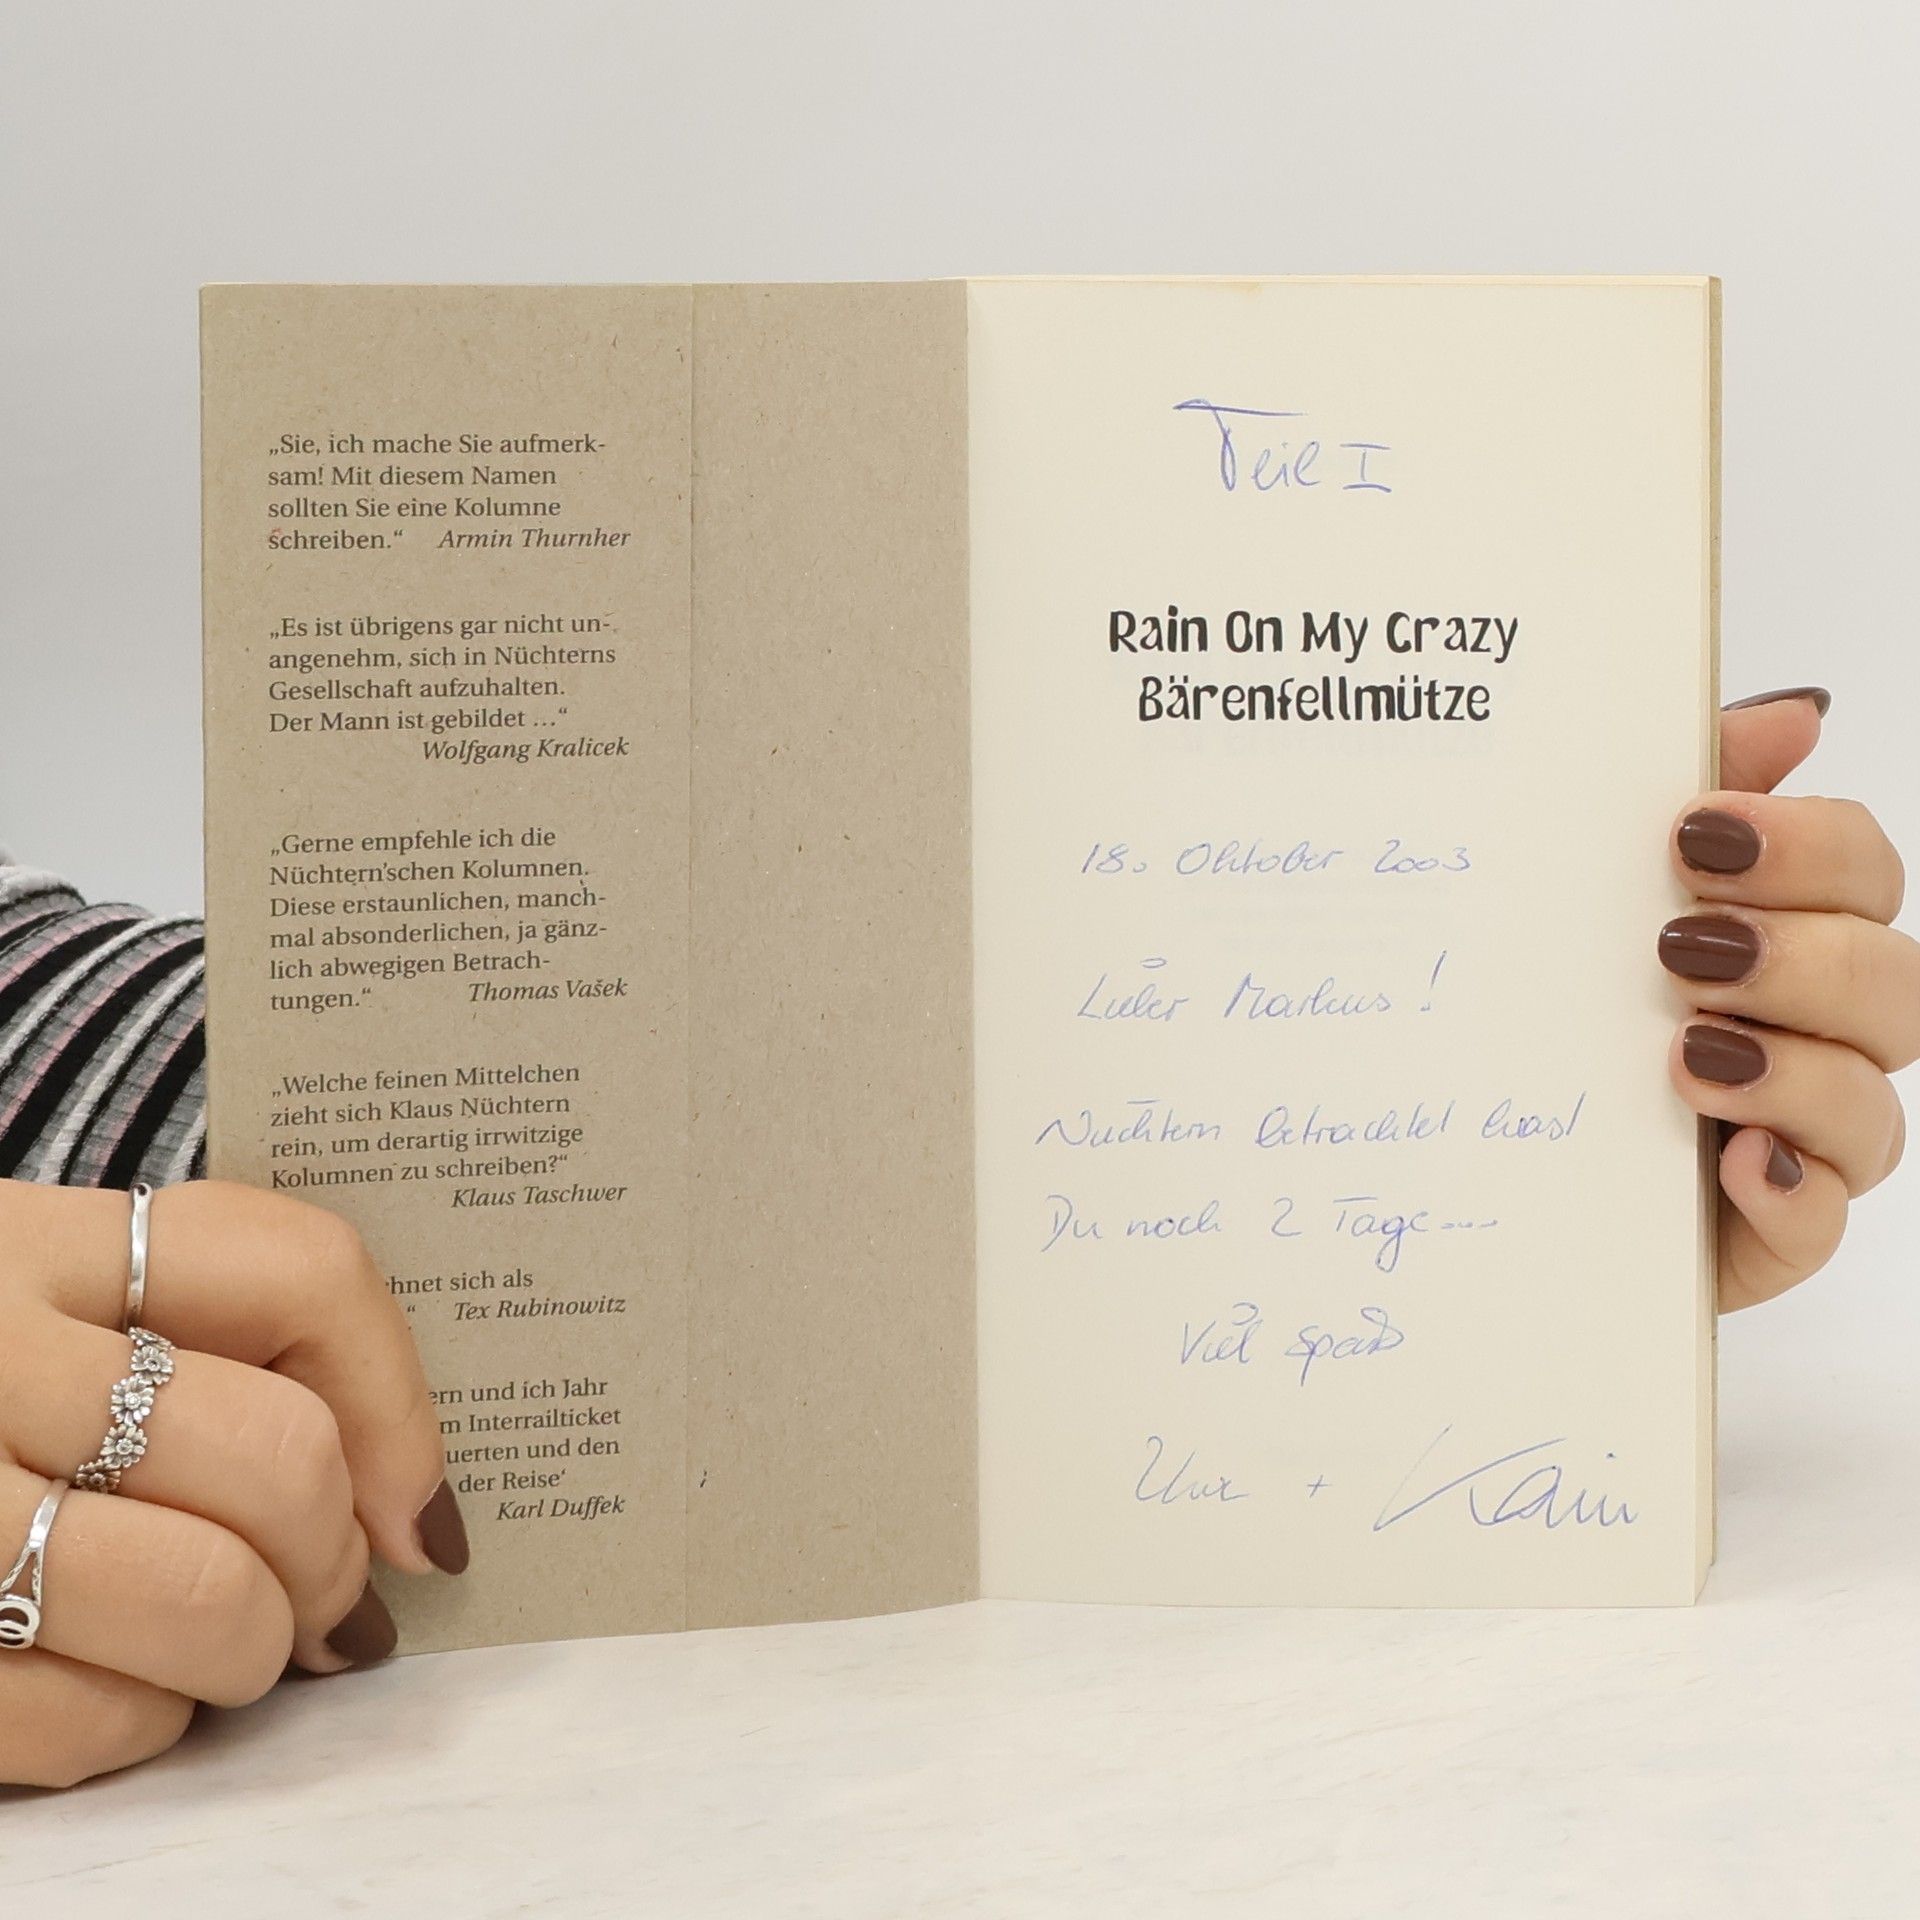 „Sie, ich mache Sie aufmerk-
sam! Mit diesem Namen
sollten Sie eine Kolumne
schreiben.“ Armin Thurnher
„Es ist übrigens gar nicht un-
angenehm, sich in Nüchterns
Gesellschaft aufzuhalten.
Der Mann ist gebildet …“
Wolfgang Kralicek
„Gerne empfehle ich die
Nüchtern’schen Kolumnen.
Diese erstaunlichen, manch-
mal absonderlichen, ja gänz-
lich abwegigen Betrach-
tungen.“ Thomas Vašek
„Welche feinen Mittelchen
zieht sich Klaus Nüchtern
rein, um derartig irrwitzige
Kolumnen zu schreiben?“
Klaus Taschwer
hnet sich als
“ Tex Rubinowitz
ern und ich Jahr
m Interrailticket
uerten und den
der Reise‘
Karl Duffek
Teil I
Rain On My Crazy
Bärenfellmütze
18. Oktober 2003
Lieber Markus!
Nüchtern betrachtet hast
Du noch 2 Tage....
Viel Spaß
+